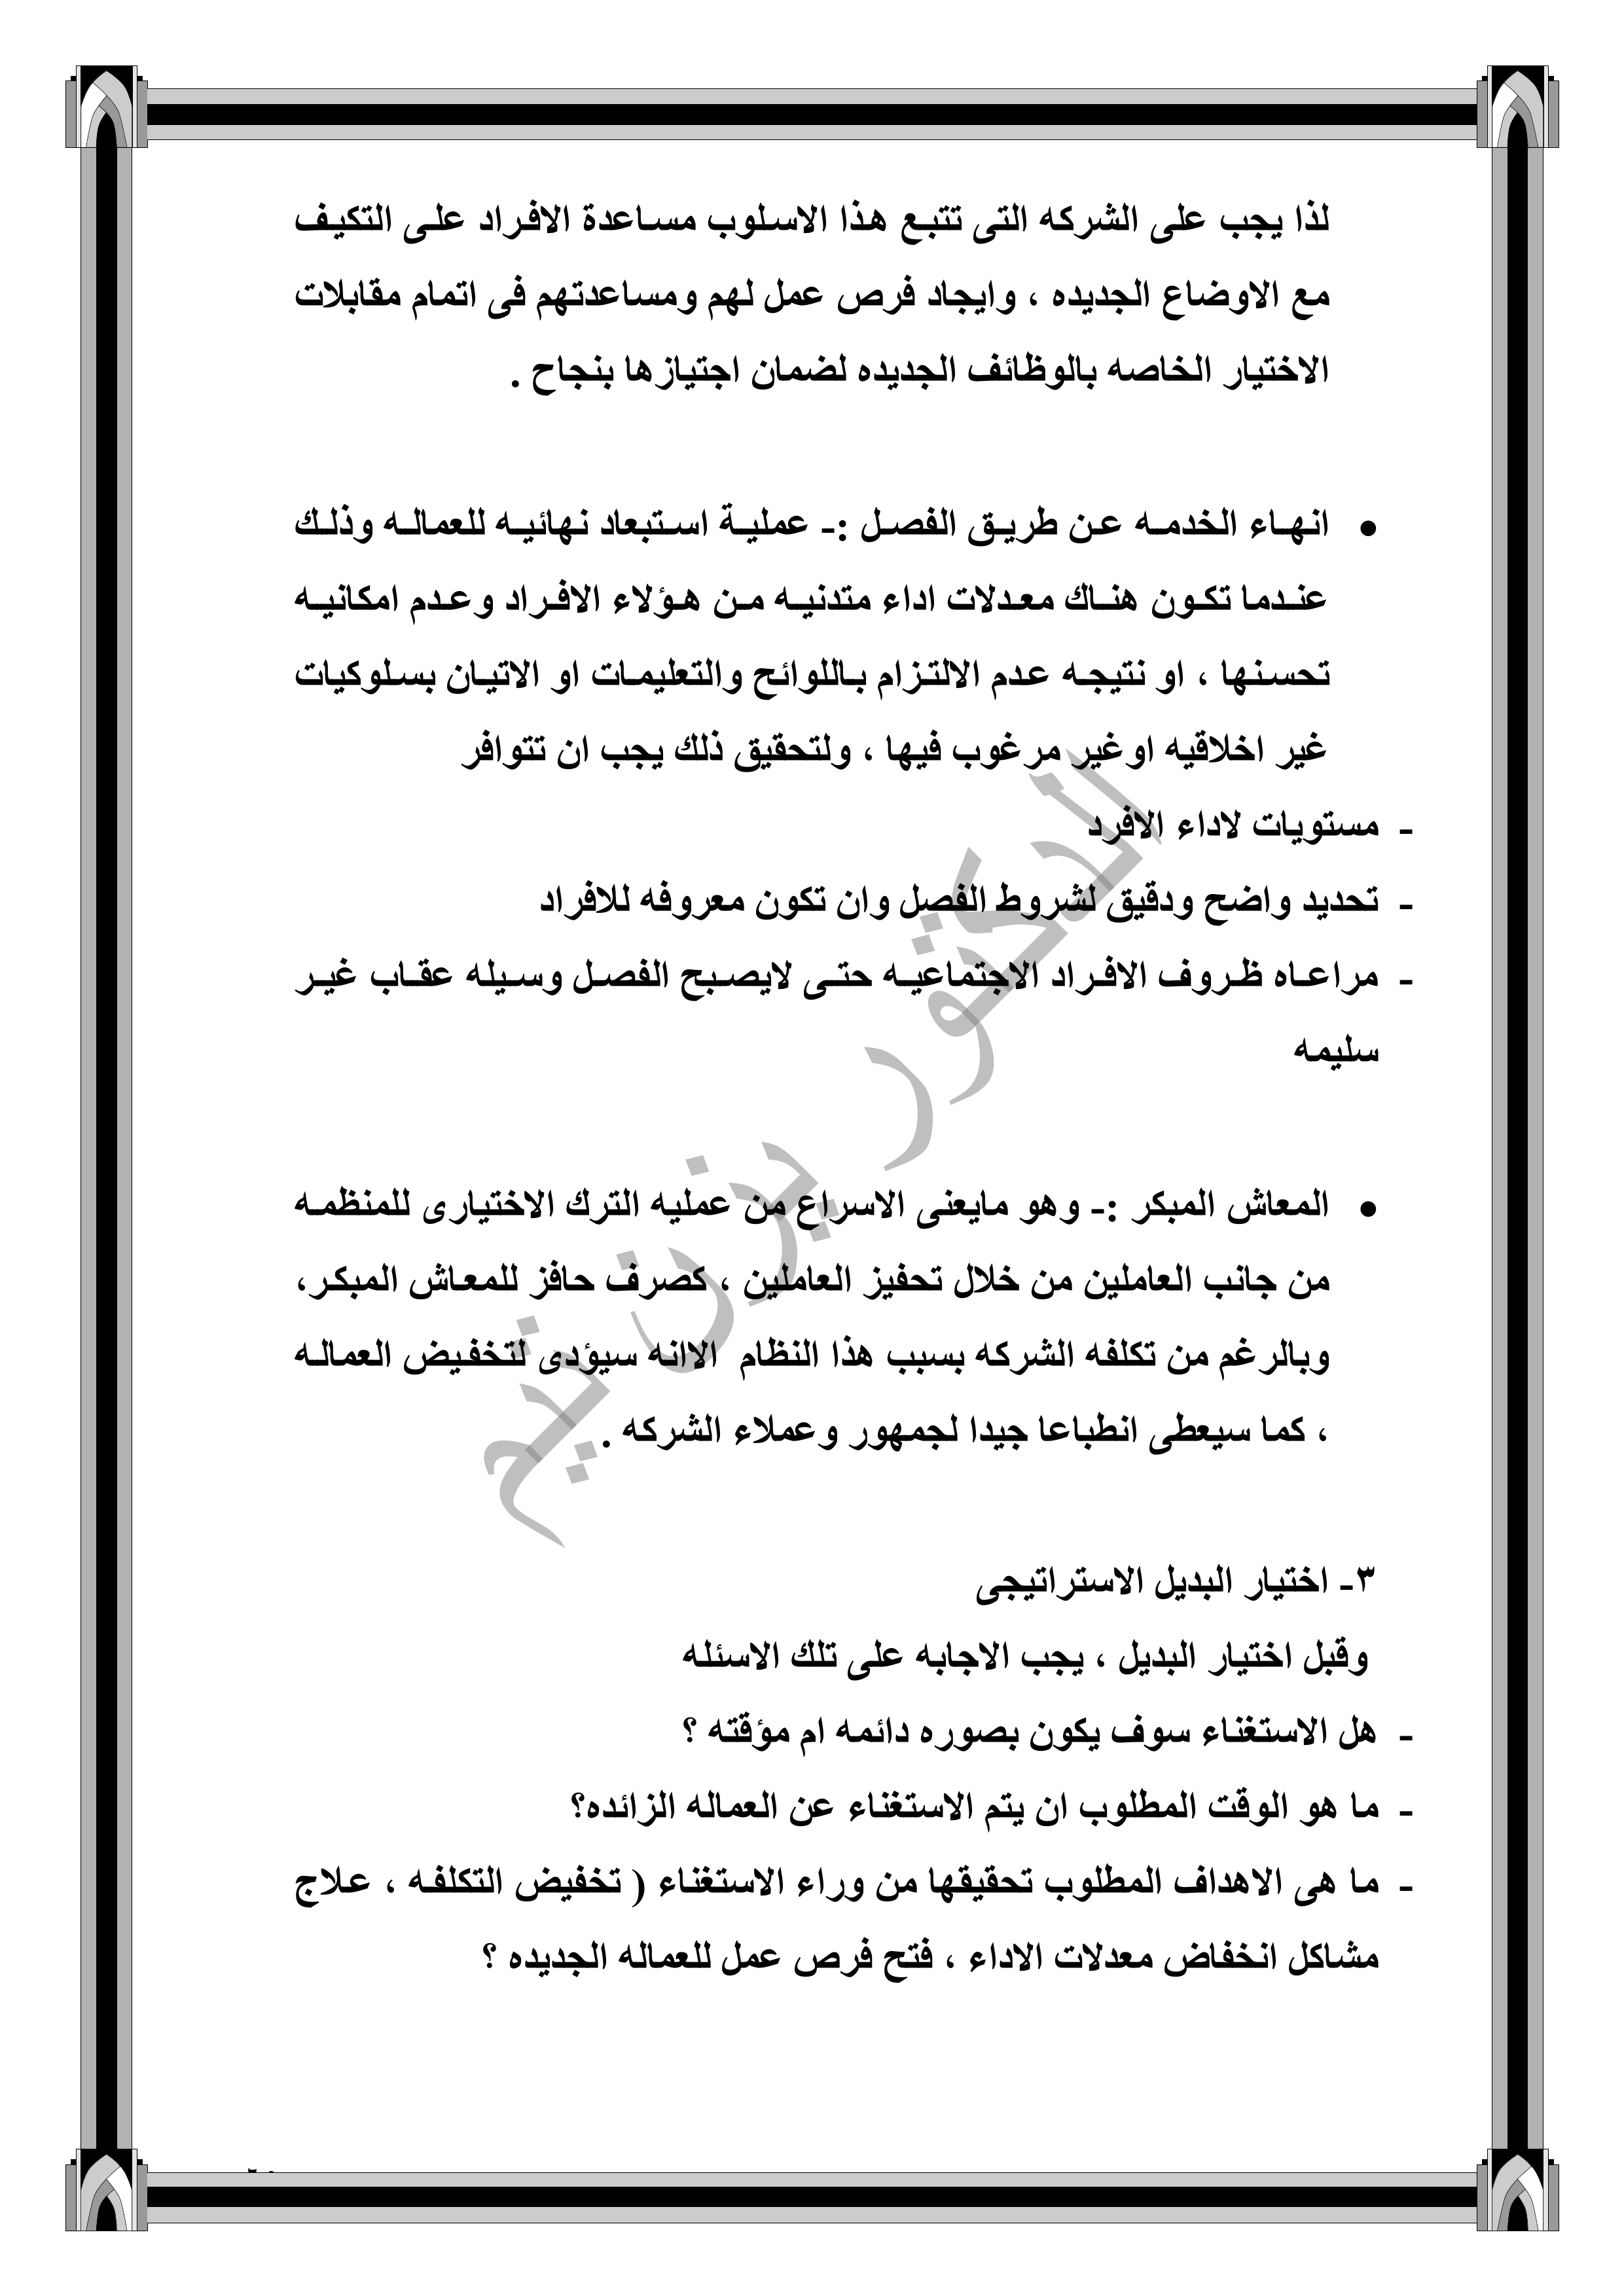 لذا يجب على الشركه التى تتبع هذا الاسلوب مساعدة الافراد على التكيف
مع الاوضاع الجديده ، وايجاد فرص عمل لهم ومساعدتهم فى اتمام مقابلات
الاختيار الخاصه بالوظائف الجديده لضمان اجتيازها بنجاح .
• انهاء الخدمه عن طريق الفصل :- عملية استبعاد نهائيه للعماله وذلك
عندما تكون هناك معدلات اداء متدنيه من هؤلاء الافراد وعدم امكانيه
تحسنها ، او نتيجه عدم الالتزام باللوائح والتعليمات او الاتيان بسلوكيات
غير اخلاقيه اوغير مرغوب فيها ، ولتحقيق ذلك يجب ان تتوافر
- مستويات لاداء الافرد
- تحديد واضح ودقيق لشروط الفصل وان تكون معروفه للافراد
- مراعاه ظروف الافراد الاجتماعيه حتى لايصبح الفصل وسيله عقاب غير
سليمه
• المعاش المبكر :- وهو مايعنى الاسراع من عمليه الترك الاختيارى للمنظمه
من جانب العاملين من خلال تحفيز العاملين ، كصرف حافز للمعاش المبكر،
وبالرغم من تكلفه الشركه بسبب هذا النظام الاانه سيؤدى لتخفيض العماله
، كما سيعطى انطباعا جيدا لجمهور وعملاء الشركه .
٣- اختيار البديل الاستراتيجى
وقبل اختيار البديل ، يجب الاجابه على تلك الاسئله
- هل الاستغناء سوف يكون بصوره دائمه ام مؤقته ؟
- ما هو الوقت المطلوب ان يتم الاستغناء عن العماله الزائده؟
- ما هى الاهداف المطلوب تحقيقها من وراء الاستغناء ( تخفيض التكلفه ، علاج
مشاكل انخفاض معدلات الاداء ، فتح فرص عمل للعماله الجديده ؟
الدكتور يزن تيم